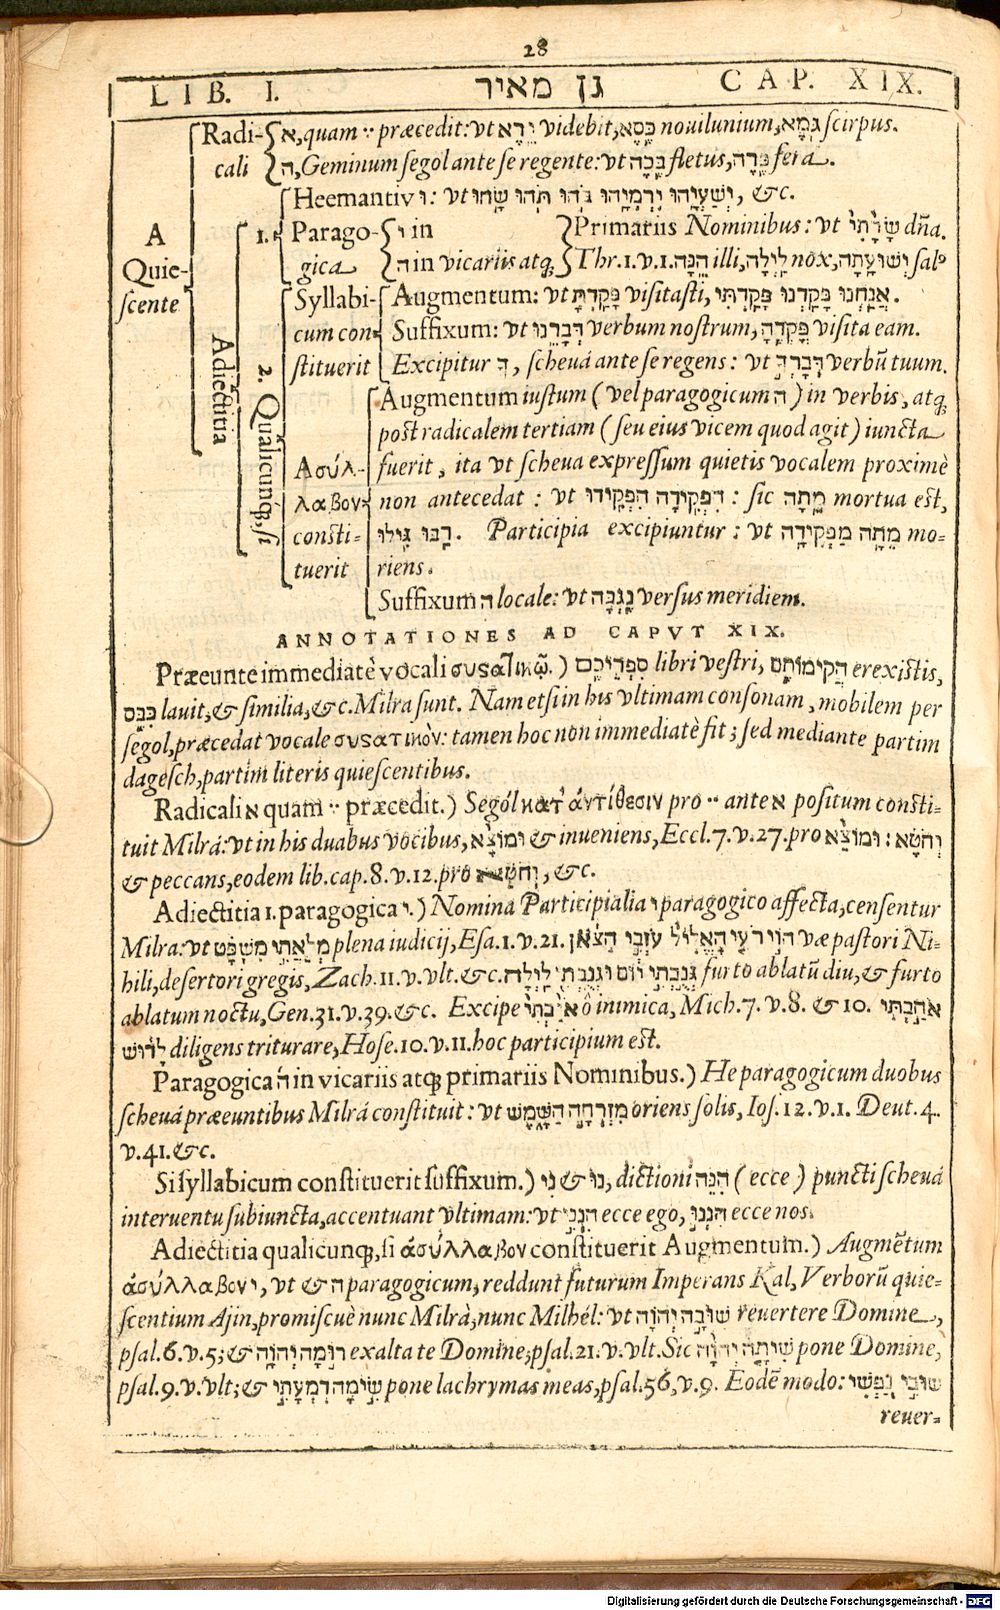 28
LIB. I. גן מאיר CAP. XIX.
A Quiescente
Radicali
א, quam ·· præcedit: vt יֵרֶא videbit, כֶּסֶא nouilunium, גֹּמֶא scirpus.
ה, Geminum segol ante se regente: vt בֶּכֶה fletus, פֶּרֶה fera.
Adiectitia
1.
Heemantiv ו: vt יְשַׁעְיָהוּ יִרְמְיָהוּ בֹּהוּ תֹּהוּ שָׂחוּ, &c.
Paragogica
י in
ה in vicariis atq;
Primariis Nominibus: vt שָׂרָתִי dña.
Thr. 1. v. 1. הֵנָּה illi, לַיְלָה nox, יְשׁוּעָתָה sal⁹
2. Qualicunq;, si
Syllabicum constituerit
Augmentum: vt פָּקַדְתָּ visitasti, אֲנַחְנוּ פָּקַדְנוּ פָּקַדְתִּי.
Suffixum: vt דְּבָרֵנוּ verbum nostrum, פָּקְדָהּ visita eam.
Excipitur ךָ, scheuá ante se regens: vt דְּבָרְךָ verbũ tuum.
Ασύλλαβον constituerit
Augmentum iustum (vel paragogicum ה) in verbis, atq;
post radicalem tertiam (seu eius vicem quod agit) iuncta
fuerit, ita vt scheua expressum quietis vocalem proximè
non antecedat: vt הִפְקִידָה הִפְקִידוּ: sic מֵתָה mortua est,
רַבּוּ גִּילוּ. Participia excipiuntur: vt מֵתָה מַפְקִידָה mo-
riens.
Suffixum ה locale: vt נֶגְבָּה versus meridiem.
ANNOTATIONES AD CAPVT XIX.
Præeunte immediatè vocali συσατικῷ.) סִפְרֵיכֶם libri vestri, הֲקִימוֹתֶם erexistis,
כִּבֶּס lauit, & similia, &c. Milra sunt. Nam etsi in his vltimam consonam, mobilem per
segol, præcedat vocale συσατικὸν: tamen hoc non immediatè fit; sed mediante partim
dagesch, partim literis quiescentibus.
Radicali א quam ·· præcedit.) Segól κατ᾽ ἀντίθεσιν pro ·· ante א positum consti-
tuit Milrá: vt in his duabus vocibus, וּמוֹצֶא & inueniens, Eccl. 7. v. 27. pro וּמוֹצֵא: וְחֹטֶא
& peccans, eodem lib. cap. 8. v. 12. pro וְחֹטֵא, &c.
Adiectitia 1. paragogica י.) Nomina Participialia י paragogico affecta, censentur
Milra: vt מְלֵאֲתִי מִשְׁפָּט plena iudicij, Esa. 1. v. 21. הוֹי רֹעִי הָאֱלִיל עֹזְבִי הַצֹּאן væ pastori Ni-
hili, desertori gregis, Zach. 11. v. vlt. &c. גְּנֻבְתִי יוֹם וּגְנֻבְתִי לָיְלָה furto ablatũ diu, & furto
ablatum noctu, Gen. 31. v. 39. &c. Excipe אֹיַבְתִּי ô inimica, Mich. 7. v. 8. & 10. אֹהַבְתִּי
לָדוּשׁ diligens triturare, Hose. 10. v. 11. hoc participium est.
Paragogica ה in vicariis atq; primariis Nominibus.) He paragogicum duobus
scheuá præeuntibus Milrá constituit: vt מִזְרְחָה הַשָּׁמֶשׁ oriens solis, Ios. 12. v. 1. Deut. 4.
v. 41. &c.
Si syllabicum constituerit suffixum.) נִי & נוּ, dictioni הִנֵּה (ecce) puncti scheuá
interuentu subiuncta, accentuant vltimam: vt הִנְנִי ecce ego, הִנְנוּ ecce nos.
Adiectitia qualicunq;, si ἀσύλλαβον constituerit Augmentum.) Augmẽtum
ἀσύλλαβον י, vt & ה paragogicum, reddunt futurum Imperans Kal, Verborũ quie-
scentium Ajin, promiscuè nunc Milrà, nunc Milhél: vt שׁוּבָה יְהוָֹה reuertere Domine,
psal. 6. v. 5; & רוּמָה יְהוָֹה exalta te Domine; psal. 21. v. vlt. Sic שִׁיתָה יְהוָֹה pone Domine,
psal. 9. v. vlt; & שִׂימָה דִמְעָתִי pone lachrymas meas, psal. 56, v. 9. Eodẽ modo: שׁוּבִי נַפְשִׁי
reuer-
Digitalisierung gefördert durch die Deutsche Forschungsgemeinschaft - DFG